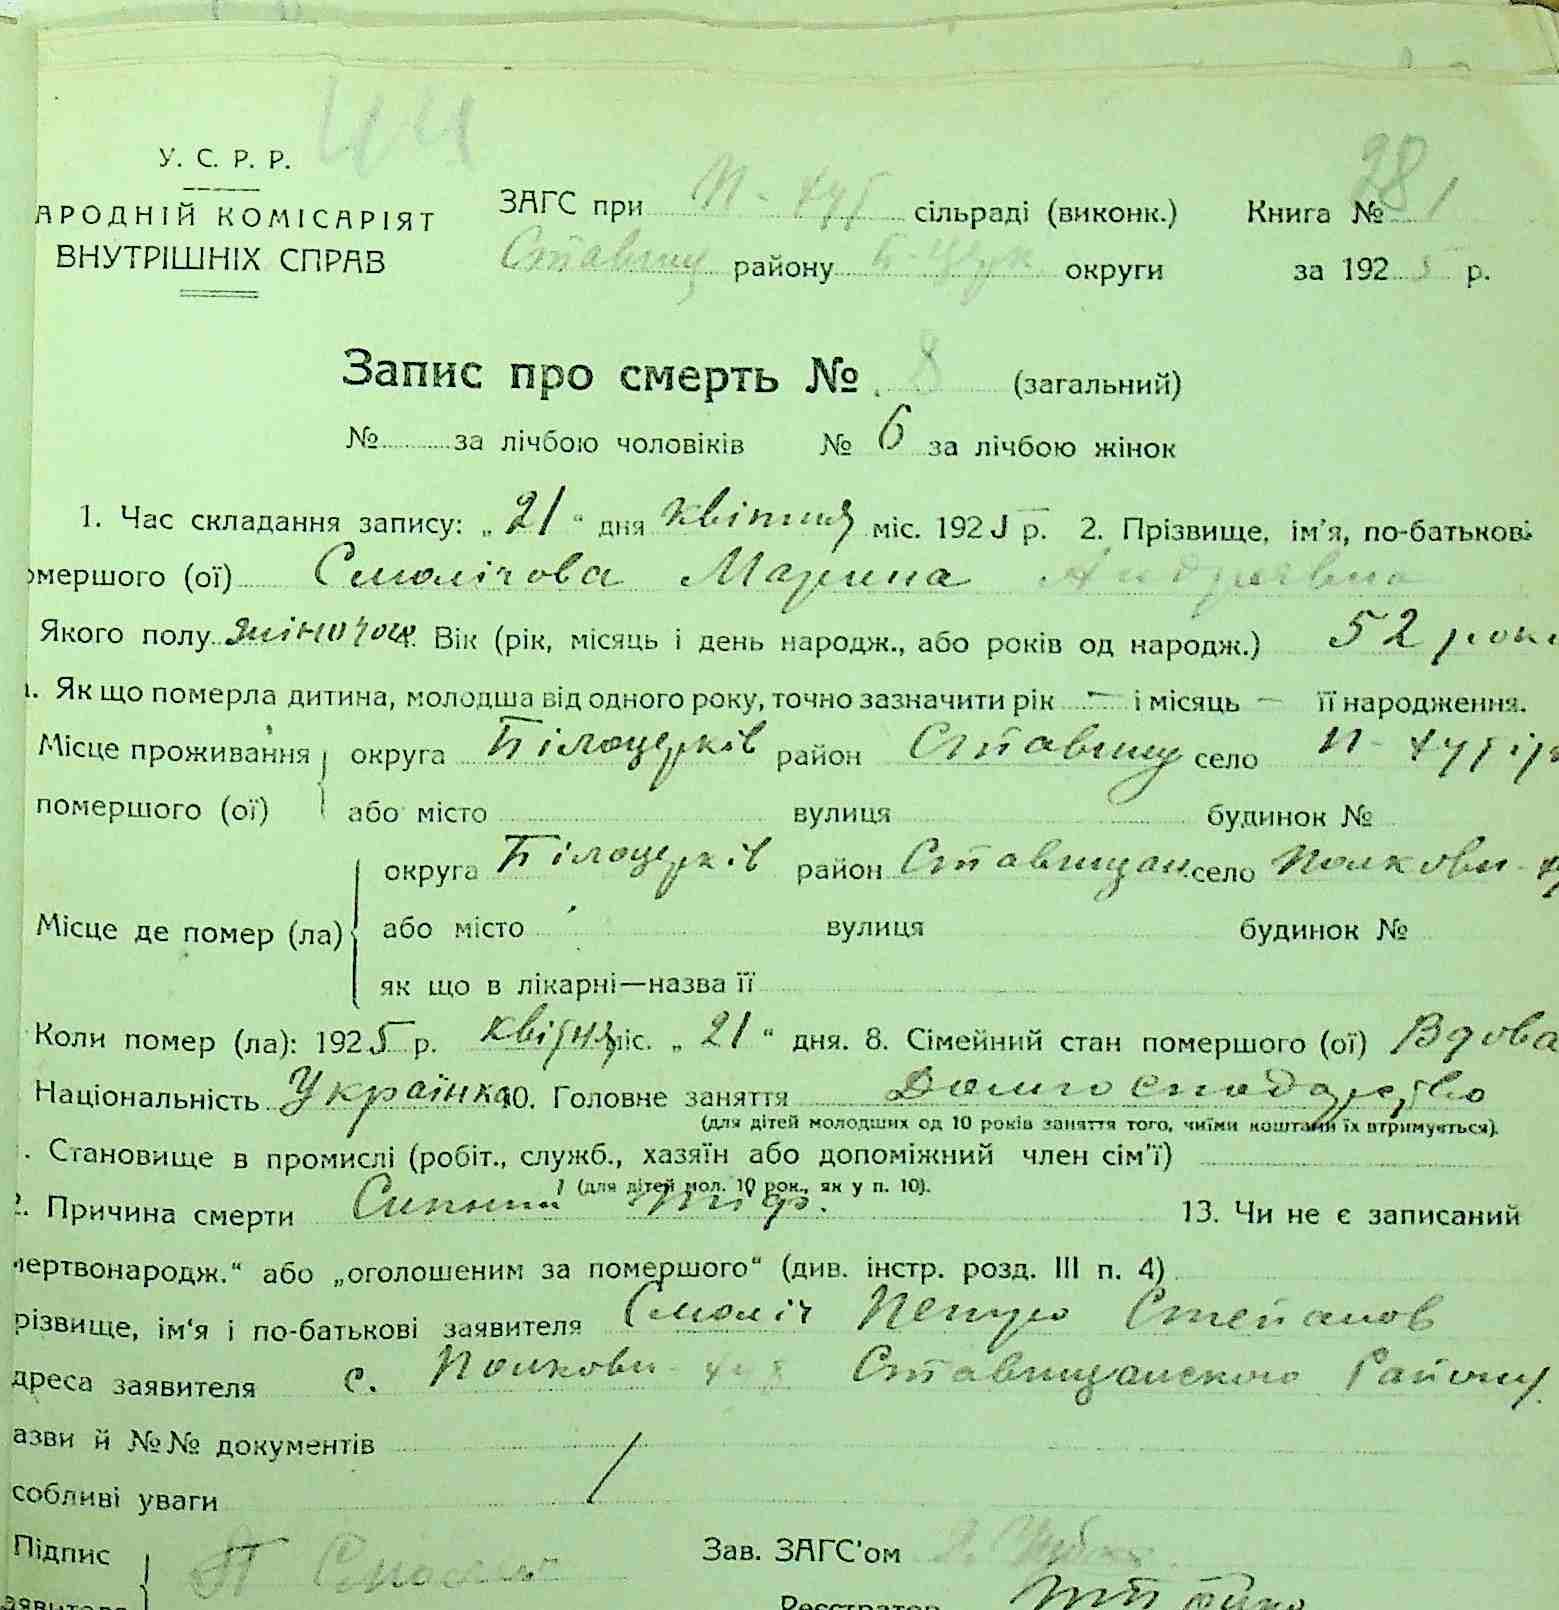 У. С. Р. Р.
АРОДНІЙ КОМІСАРІЯТ
ВНУТРІШНІХ СПРАВ
ЗАГС при П - хут сільраді (виконк.) Книга № 1
28
Ставищ району Б-Церк округи за 192 5 р.
Запис про смерть № 8 (загальний)
№ за лічбою чоловіків № 6 за лічбою жінок
1. Час складання запису: „ 21 “ дня квітня міс. 192 5 р. 2. Прізвище, ім'я, по-батькові
омершого (ої) Смолічова Марина Андреєвна
Якого полу жіночої Вік (рік, місяць і день народж., або років од народж.) 52 роки
. Як що померла дитина, молодша від одного року, точно зазначити рік — і місяць — її народження.
Місце проживання округа Білоцерків район Ставищ село П - хутір
помершого (ої) або місто вулиця будинок №
округа Білоцерків район Ставищан село Полкови - ху
Місце де помер (ла) або місто вулиця будинок №
як що в лікарні—назва її
Коли помер (ла): 192 5 р. квітня міс. „ 21 “ дня. 8. Сімейний стан помершого (ої) Вдова
Національність Українка 10. Головне заняття Домгосподарство
(для дітей молодших од 10 років заняття того, чиїми коштами їх втримується).
. Становище в промислі (робіт., служб., хазяїн або допоміжний член сім'ї)
(для дітей мол. 10 рок., як у п. 10).
2. Причина смерти Сипний тиф. 13. Чи не є записаний
мертвонародж.“ або „оголошеним за помершого“ (див. інстр. розд. III п. 4)
різвище, ім'я і по-батькові заявителя Смоліч Петро Степанов
дреса заявителя с. Полкови - хут Ставищанского Району.
азви й №№ документів
собливі уваги
Підпис П Смоліч Зав. ЗАГС'ом
аявителя Реєстратор